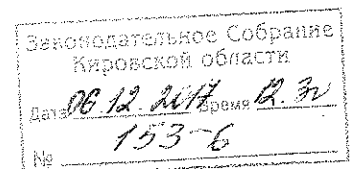 Законодательное Собрание
Кировской области
Дата 06.12.2017 Время 12.32
№ 153-6